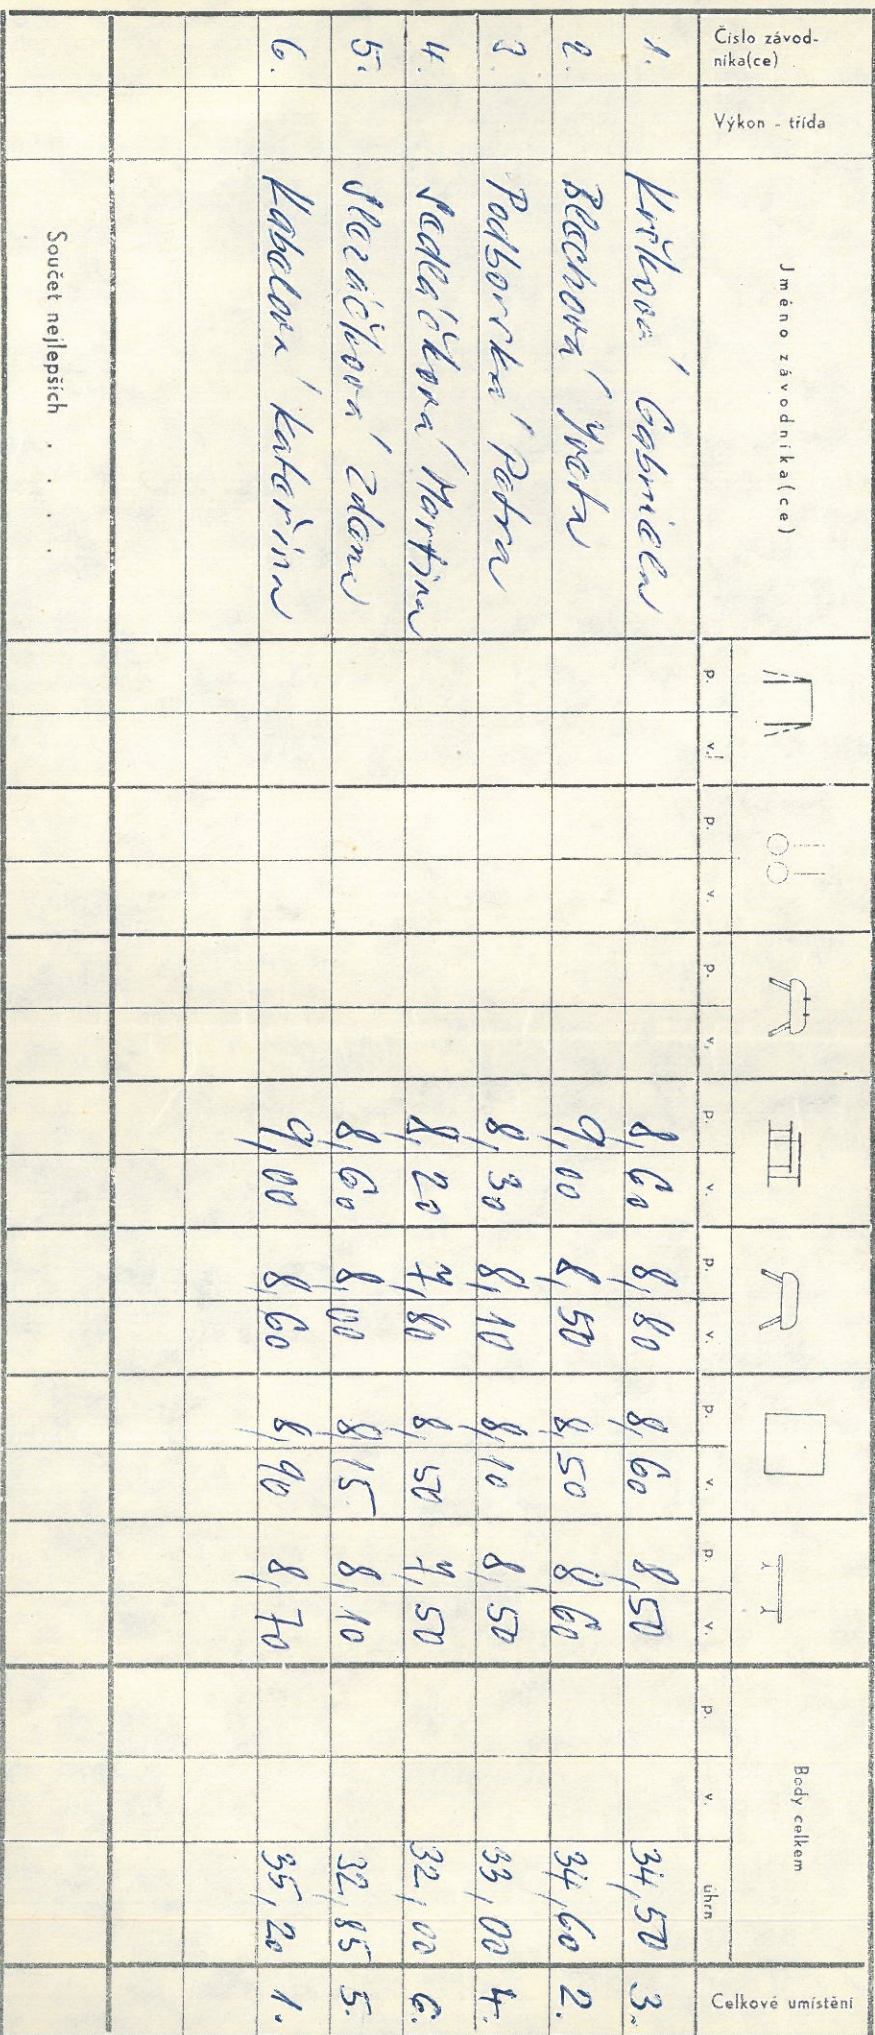 Číslo závod-
níka(ce)
Výkon - třída
Jméno závodníka(ce)
p. v. p. v. p. v. p. v. p. v. p. v. p. v. p. v. úhrn
Body celkem
Celkové umístění
1. Křížová Gabriela 8,60 8,80 8,60 8,50 34,50 3.
2. Blechová Iveta 9,00 8,50 8,50 8,60 34,60 2.
3. Podborská Petra 8,30 8,10 8,10 8,50 33,00 4.
4. Sedláčková Martina 8,20 7,80 8,50 7,50 32,00 6.
5. Slezáčková Zdena 8,60 8,00 8,15 8,10 32,85 5.
6. Kabelová Kateřina 9,00 8,60 8,90 8,70 35,20 1.
Součet nejlepších . . . .